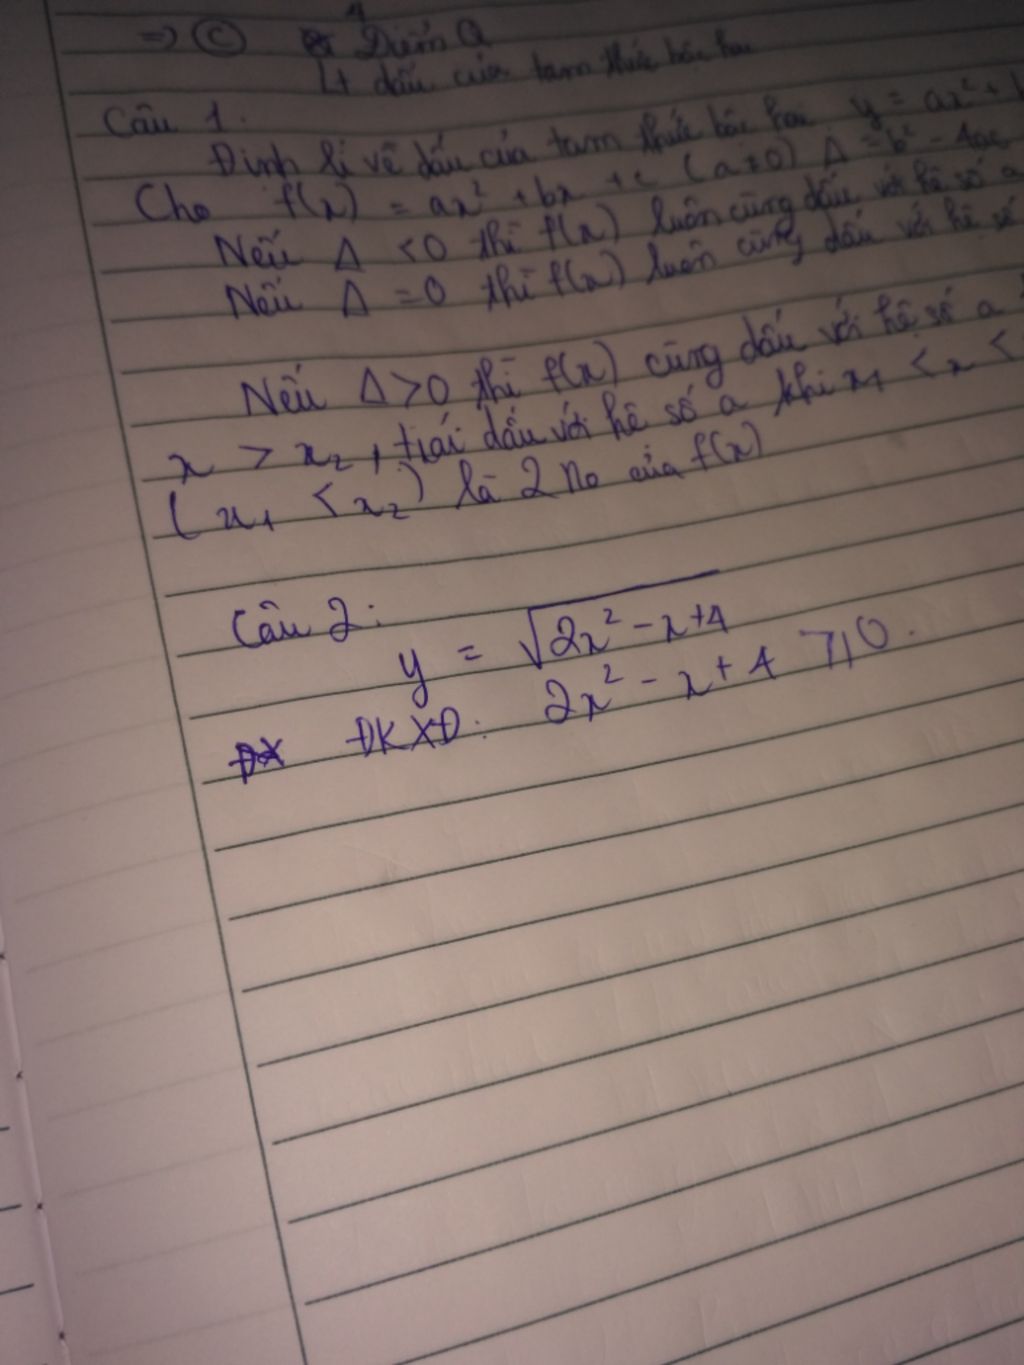 ⇒ Ⓒ Điểm Q
L+ dấu của tam thức bậc hai
Câu 1.
Định lí về dấu của tam thức bậc hai y = ax² + b
Cho f(x) = ax² + bx + c (a≠0) Δ = b² - 4ac
Nếu Δ < 0 thì f(x) luôn cùng dấu với hệ số a
Nếu Δ = 0 thì f(x) luôn cùng dấu với hệ số
Nếu Δ > 0 thì f(x) cùng dấu với hệ số a
x > x₂, trái dấu với hệ số a khi x₁ < x <
(x₁ < x₂) là 2 no của f(x)
Câu 2:
y = √2x² - x + 4
ĐX ĐKXĐ: 2x² - x + 4 ⩾ 0.